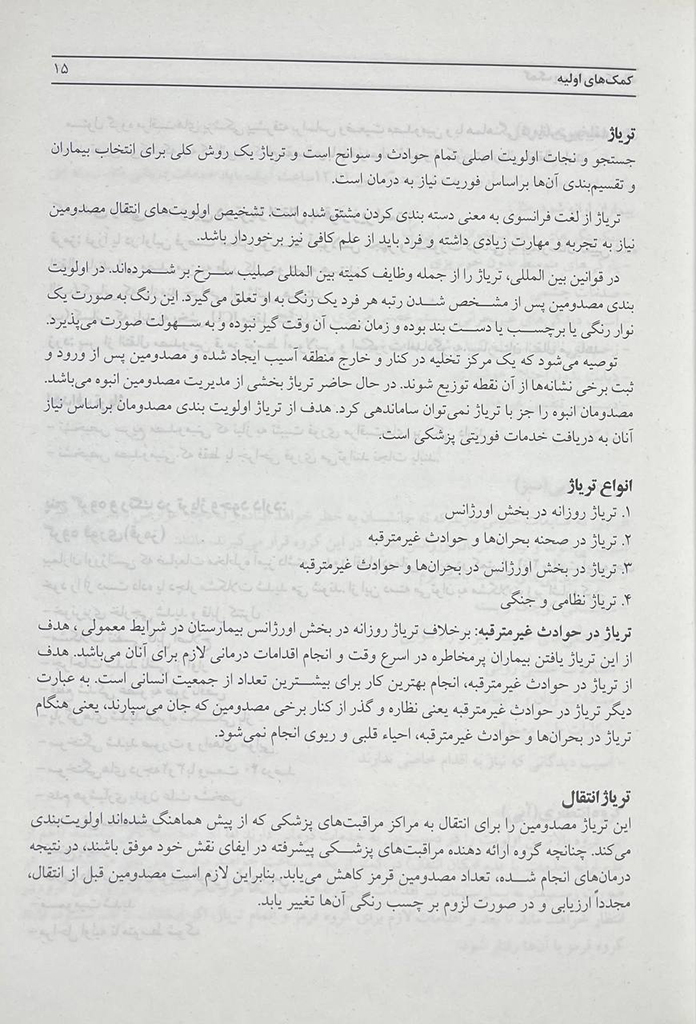 کمک‌های اولیه
۱۵
تریاژ
جستجو و نجات اولویت اصلی تمام حوادث و سوانح است و تریاژ یک روش کلی برای انتخاب بیماران
و تقسیم‌بندی آن‌ها براساس فوریت نیاز به درمان است.
تریاژ از لغت فرانسوی به معنی دسته بندی کردن مشتق شده است. تشخیص اولویت‌های انتقال مصدومین
نیاز به تجربه و مهارت زیادی داشته و فرد باید از علم کافی نیز برخوردار باشد.
در قوانین بین المللی، تریاژ را از جمله وظایف کمیته بین المللی صلیب سرخ بر شمرده‌اند. در اولویت
بندی مصدومین پس از مشخص شدن رتبه هر فرد یک رنگ به او تعلق می‌گیرد. این رنگ به صورت یک
نوار رنگی یا برچسب یا دست بند بوده و زمان نصب آن وقت گیر نبوده و به سهولت صورت می‌پذیرد.
توصیه می‌شود که یک مرکز تخلیه در کنار و خارج منطقه آسیب ایجاد شده و مصدومین پس از ورود و
ثبت برخی نشانه‌ها از آن نقطه توزیع شوند. در حال حاضر تریاژ بخشی از مدیریت مصدومین انبوه می‌باشد.
مصدومان انبوه را جز با تریاژ نمی‌توان ساماندهی کرد. هدف از تریاژ اولویت بندی مصدومان براساس نیاز
آنان به دریافت خدمات فوریتی پزشکی است.
انواع تریاژ
۱. تریاژ روزانه در بخش اورژانس
۲. تریاژ در صحنه بحران‌ها و حوادث غیرمترقبه
۳. تریاژ در بخش اورژانس در بحران‌ها و حوادث غیرمترقبه
۴. تریاژ نظامی و جنگی
تریاژ در حوادث غیرمترقبه: برخلاف تریاژ روزانه در بخش اورژانس بیمارستان در شرایط معمولی ، هدف
از این تریاژ یافتن بیماران پرمخاطره در اسرع وقت و انجام اقدامات درمانی لازم برای آنان می‌باشد. هدف
از تریاژ در حوادث غیرمترقبه، انجام بهترین کار برای بیشترین تعداد از جمعیت انسانی است. به عبارت
دیگر تریاژ در حوادث غیرمترقبه یعنی نظاره و گذر از کنار برخی مصدومین که جان می‌سپارند، یعنی هنگام
تریاژ در بحران‌ها و حوادث غیرمترقبه، احیاء قلبی و ریوی انجام نمی‌شود.
تریاژ انتقال
این تریاژ مصدومین را برای انتقال به مراکز مراقبت‌های پزشکی که از پیش هماهنگ شده‌اند اولویت‌بندی
می‌کند. چنانچه گروه ارائه دهنده مراقبت‌های پزشکی پیشرفته در ایفای نقش خود موفق باشند، در نتیجه
درمان‌های انجام شده، تعداد مصدومین قرمز کاهش می‌یابد. بنابراین لازم است مصدومین قبل از انتقال،
مجدداً ارزیابی و در صورت لزوم بر چسب رنگی آن‌ها تغییر یابد.